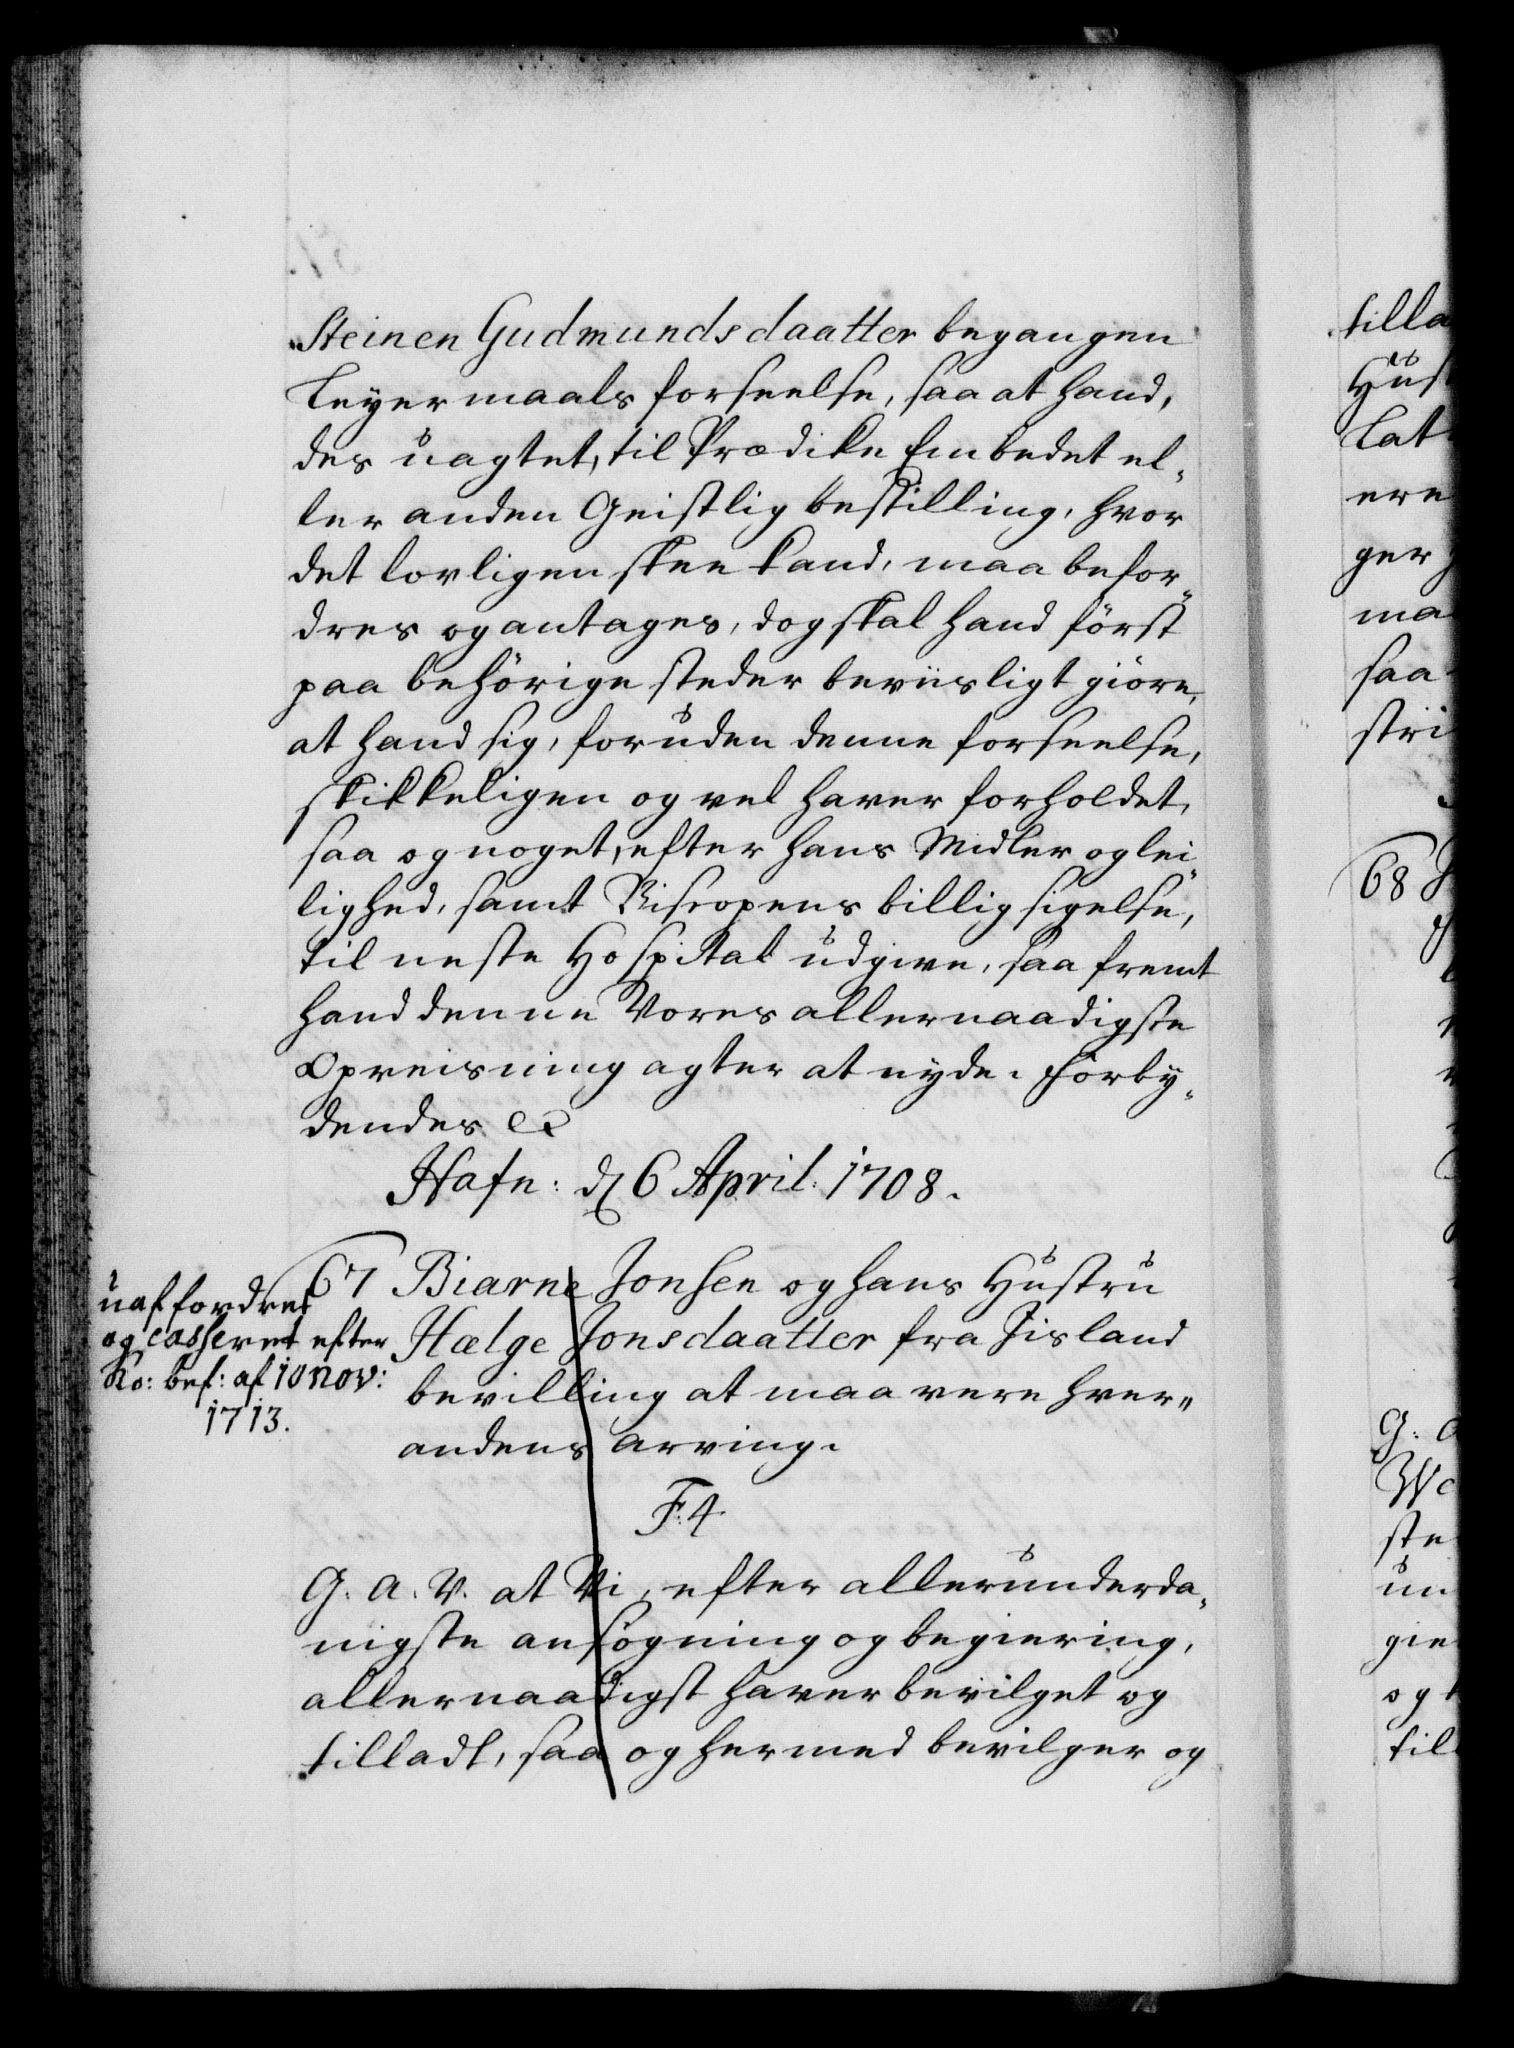 Steinen Gudmunds daatter begangen
Leyermaals forseelse, saa at hand,
des uagtet, til Prædike Embedet el-
ler anden Geistlig bestilling, hvor
det lovligen skee kand, maa befor-
dres og antages, dog skal hand først
paa behörige steder beviisligt giöre,
at hand sig, foruden denne forseelse,
skikkeligen og vel haver forholdet,
saa og noget, efter hans Midler og lei-
lighed, samt Biscopens billig sigelse,
til neste Hospital udgive, saa fremt
hand denne Vores allernaadigste
Opreisning agter at nyde. Forby-
dendes &
Hafn: d 6 April: 1708.
67 Biarne Jonsen og hans Hustru
Hælge Jonsdaatter fra Jisland
bevilling at maa være hver-
andens arving.
F: 4
G. A. V. at Vi, efter allerunderda-
nigste ansögning og begiering,
allernaadigst haver bevilget og
tilladt, saa og hermed bevilger og
uaffordret
og casseret efter
Ko: bef: af 10 Nov:
1713.
tilla
Hust
Lat
ere
ger
ma
saa
stri
68
G: a
ste
un
gie
og
til